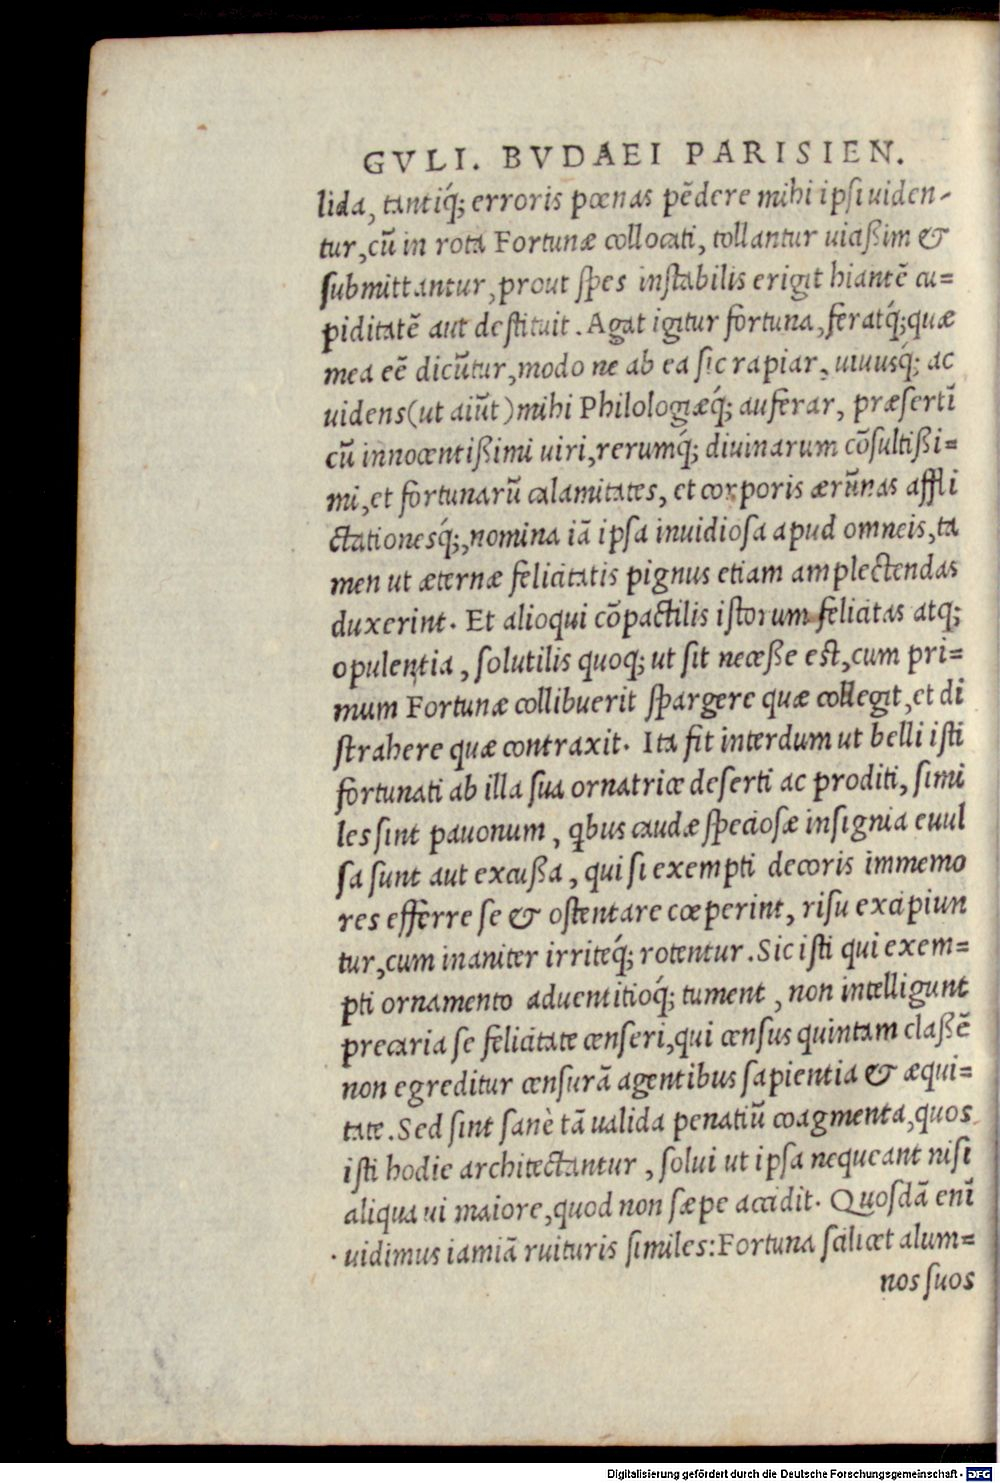 GVLI. BVDAEI PARISIEN.
lida, tantiq́; erroris pœnas pēdere mihi ipsi uiden-
tur, cū in rota Fortunæ collocati, tollantur uicaßim &
submittantur, prout spes instabilis erigit hiantē cu=
piditatē aut destituit. Agat igitur fortuna, feratq́; quæ
mea eē dicūtur, modo ne ab ea sic rapiar, uiuusq́; ac
uidens (ut aiūt) mihi Philologiæq́; auferar, præsertī
cū innocentißimi uiri, rerumq́; diuinarum cōsultißi=
mi, et fortunarū calamitates, et corporis ærūnas affli
ctationesq́;, nomina iā ipsa inuidiosa apud omneis, ta
men ut æternæ felicitatis pignus etiam amplectendas
duxerint. Et alioqui cōpactilis istorum felicitas atq;
opulentia, solutilis quoq; ut sit neceße est, cum pri=
mum Fortunæ collibuerit spargere quæ collegit, et di
strahere quæ contraxit. Ita fit interdum ut belli isti
fortunati ab illa sua ornatrice deserti ac proditi, simi
les sint pauonum, qbus caudæ speciosæ insignia euul
sa sunt aut excußa, qui si exempti decoris immemo
res efferre se & ostentare cœperint, risu excipiun
tur, cum inaniter irriteq́; rotentur. Sic isti qui exem=
pti ornamento aduentitioq́; tument, non intelligunt
precaria se felicitate censeri, qui census quintam claßē
non egreditur censurā agentibus sapientia & æqui=
tate. Sed sint sanè tā ualida penatiū coagmenta, quos
isti hodie architectantur, solui ut ipsa nequeant nisi
aliqua ui maiore, quod non sæpe accidit. Quosdā enī
uidimus iamiā ruituris similes: Fortuna scilicet alum=
nos suos
Digitalisierung gefördert durch die Deutsche Forschungsgemeinschaft - DFG